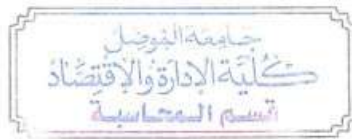 جامعة الموصل
كلية الادارة والاقتصاد
قسم المحاسبة